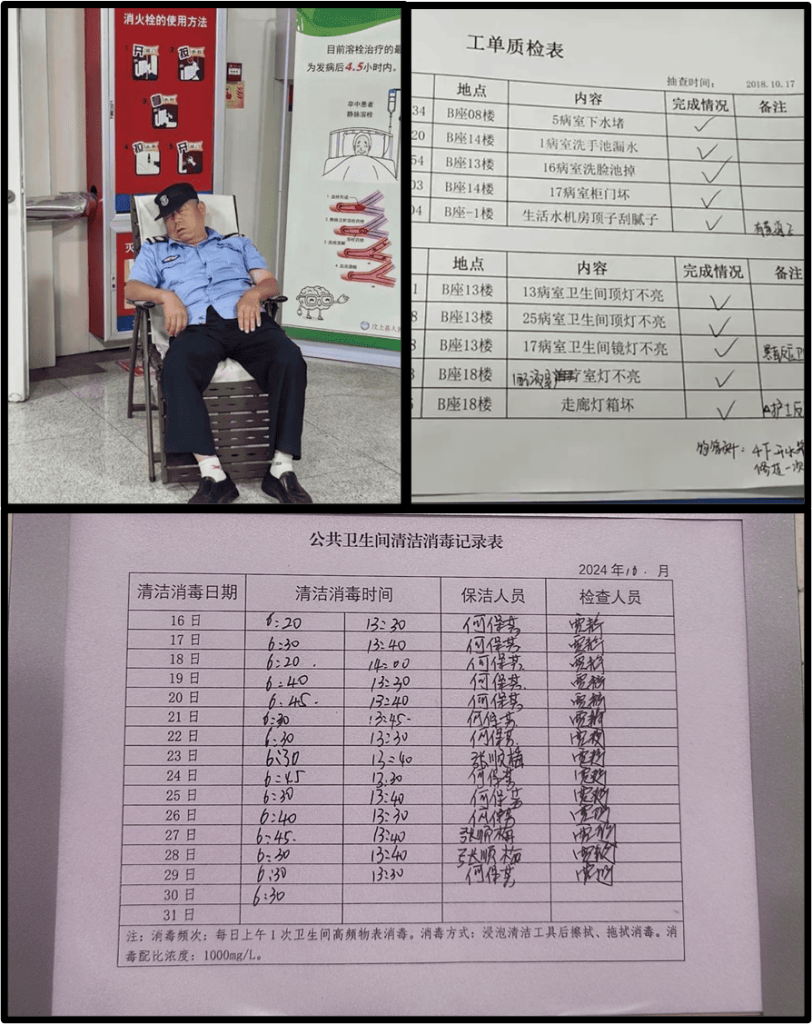 消火栓的使用方法
目前溶栓治疗的最
为发病后4.5小时内。
卒中患者
静脉溶栓
汶上县人
工单质检表
抽查时间: 2018.10.17
地点 内容 完成情况 备注
34 B座08楼 5病室下水堵 ✓
20 B座14楼 1病室洗手池漏水 ✓
54 B座13楼 16病室洗脸池掉 ✓
03 B座14楼 17病室柜门坏 ✓
04 B座-1楼 生活水机房顶子刮腻子 ✓
地点 内容 完成情况 备注
1 B座13楼 13病室卫生间顶灯不亮 ✓
8 B座13楼 25病室卫生间顶灯不亮 ✓
8 B座13楼 17病室卫生间镜灯不亮 ✓
B座18楼 室灯不亮 ✓
B座18楼 走廊灯箱坏 ✓
公共卫生间清洁消毒记录表
2024年10.月
清洁消毒日期 清洁消毒时间 保洁人员 检查人员
16日 6:20 13:30 何保芸
17日 6:30 13:40 何保芸
18日 6:20. 14:00 何保芸
19日 6:40 13:30 何保芸
20日 6:45. 13:40 何保芸
21日 6:30 13:45. 何保芸
22日 6:30 13:30 何保芸
23日 6:30 13:40 张顺梅
24日 6:45 13:30 何保芸
25日 6:30 13:40 何保芸
26日 6:40 13:30 何保芸
27日 6:45. 13:40 张顺梅
28日 6:30 13:40 张顺梅
29日 6:30 13:30 何保芸
30日 6:30
31日
注:消毒频次:每日上午1次卫生间高频物表消毒。消毒方式:浸泡清洁工具后擦拭、拖拭消毒。消
毒配比浓度:1000mg/L。